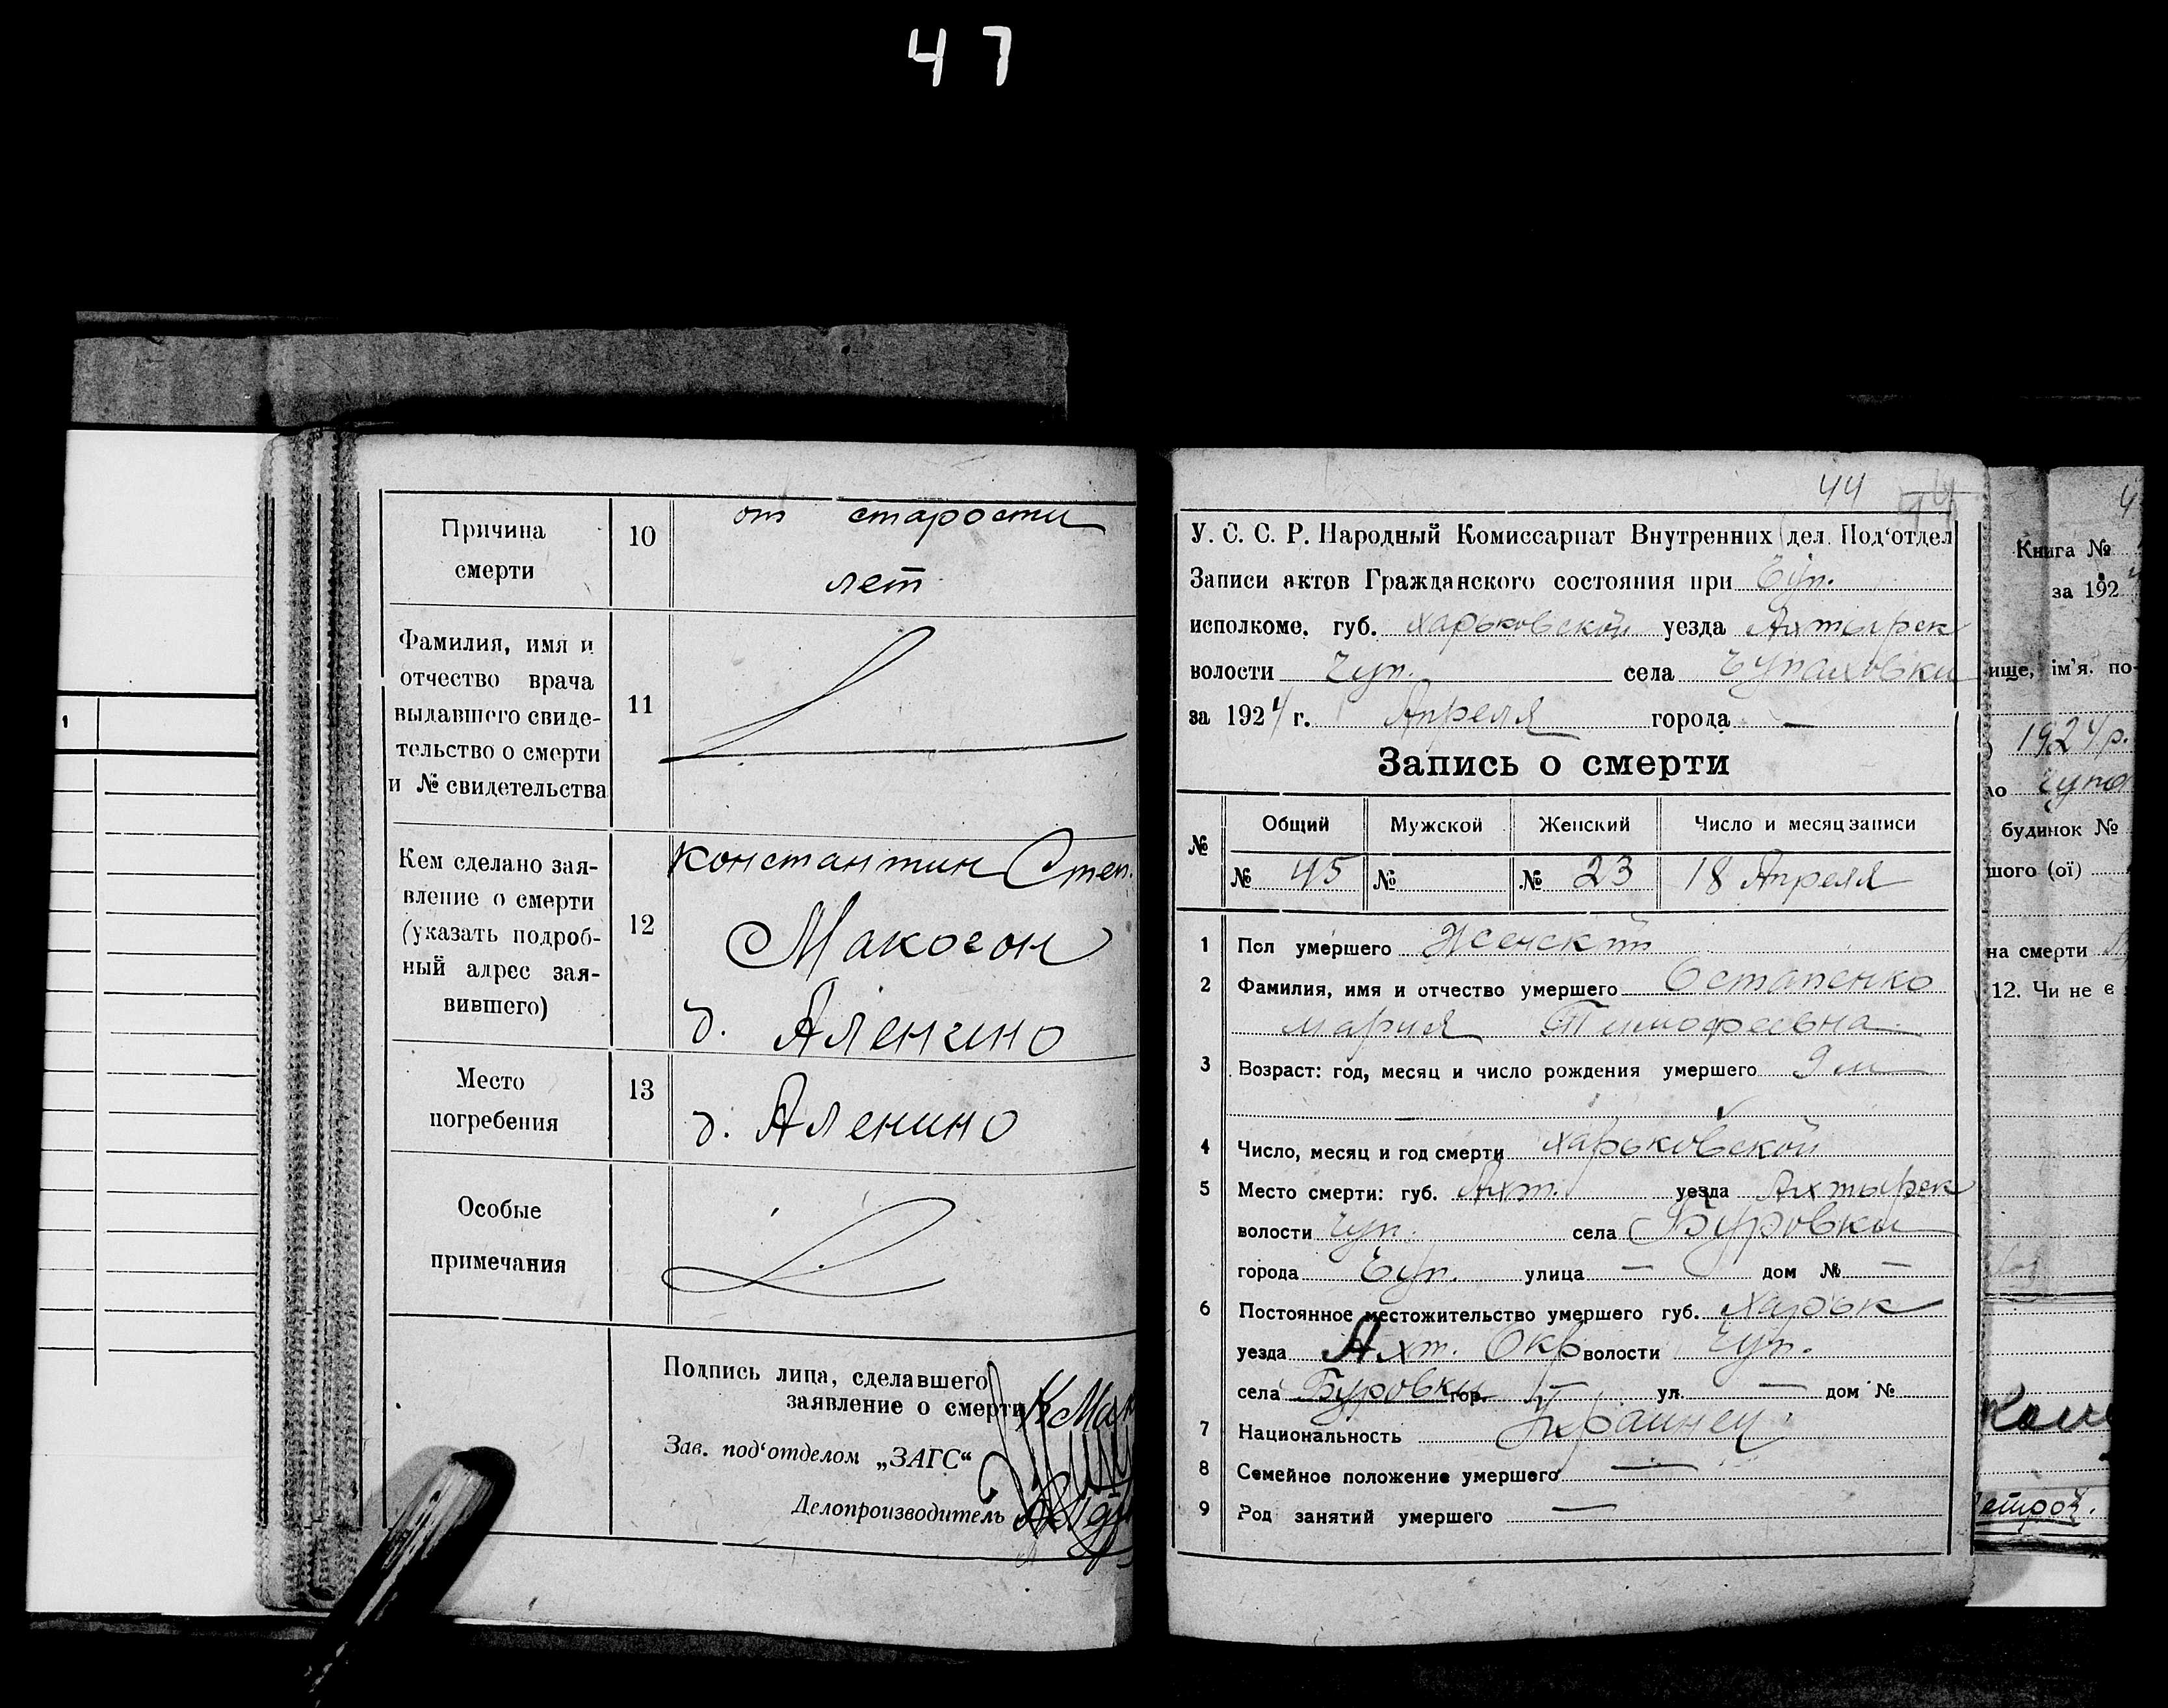 47
Причина
смерти
10
от старости
лет
Фамилия, имя и
отчество врача
выдавшего свиде-
тельство о смерти
и № свидетельства
11
Кем сделано зая-
вление о смерти
(указать подроб-
ный адрес зая-
вившего)
12
Константин Степ.
Макогон
д. Аленино
Место
погребения
13
д. Аленино
Особые
примечания
Подпись лица, сделавшего
заявление о смерти КМак
Зав. под'отделом „ЗАГС“
Делопроизводитель
44
У. С. С. Р. Народный Комиссариат Внутренних дел. Под'отдел
Записи актов Гражданского состояния при Чуп.
исполкоме, губ. Харьковской уезда Ахтырск
волости Чуп. села Чупаховки
за 1924 г. Апреля города —
Запись о смерти
№ Общий Мужской Женский Число и месяц записи
№ 45 № № 23 18 Апреля
1 Пол умершего Женский
2 Фамилия, имя и отчество умершего Остапенко
Мария Тимофеевна
3 Возраст: год, месяц и число рождения умершего 9 м
4 Число, месяц и год смерти Харьковской
5 Место смерти: губ. Ахт. уезда Ахтырск
волости Чуп. села Буровки
города Чуп. улица — дом № —
6 Постоянное местожительство умершего губ. Харьк
уезда Ахт. Окр волости Чуп.
села Буровки гор. — ул. — дом №
7 Национальность Украинец
8 Семейное положение умершего —
9 Род занятий умершего —
1
Книга №
за 192
ище, ім'я. по-
1924 р.
ло Чупа
будинок №
шого (ої)
на смерти
12. Чи не є